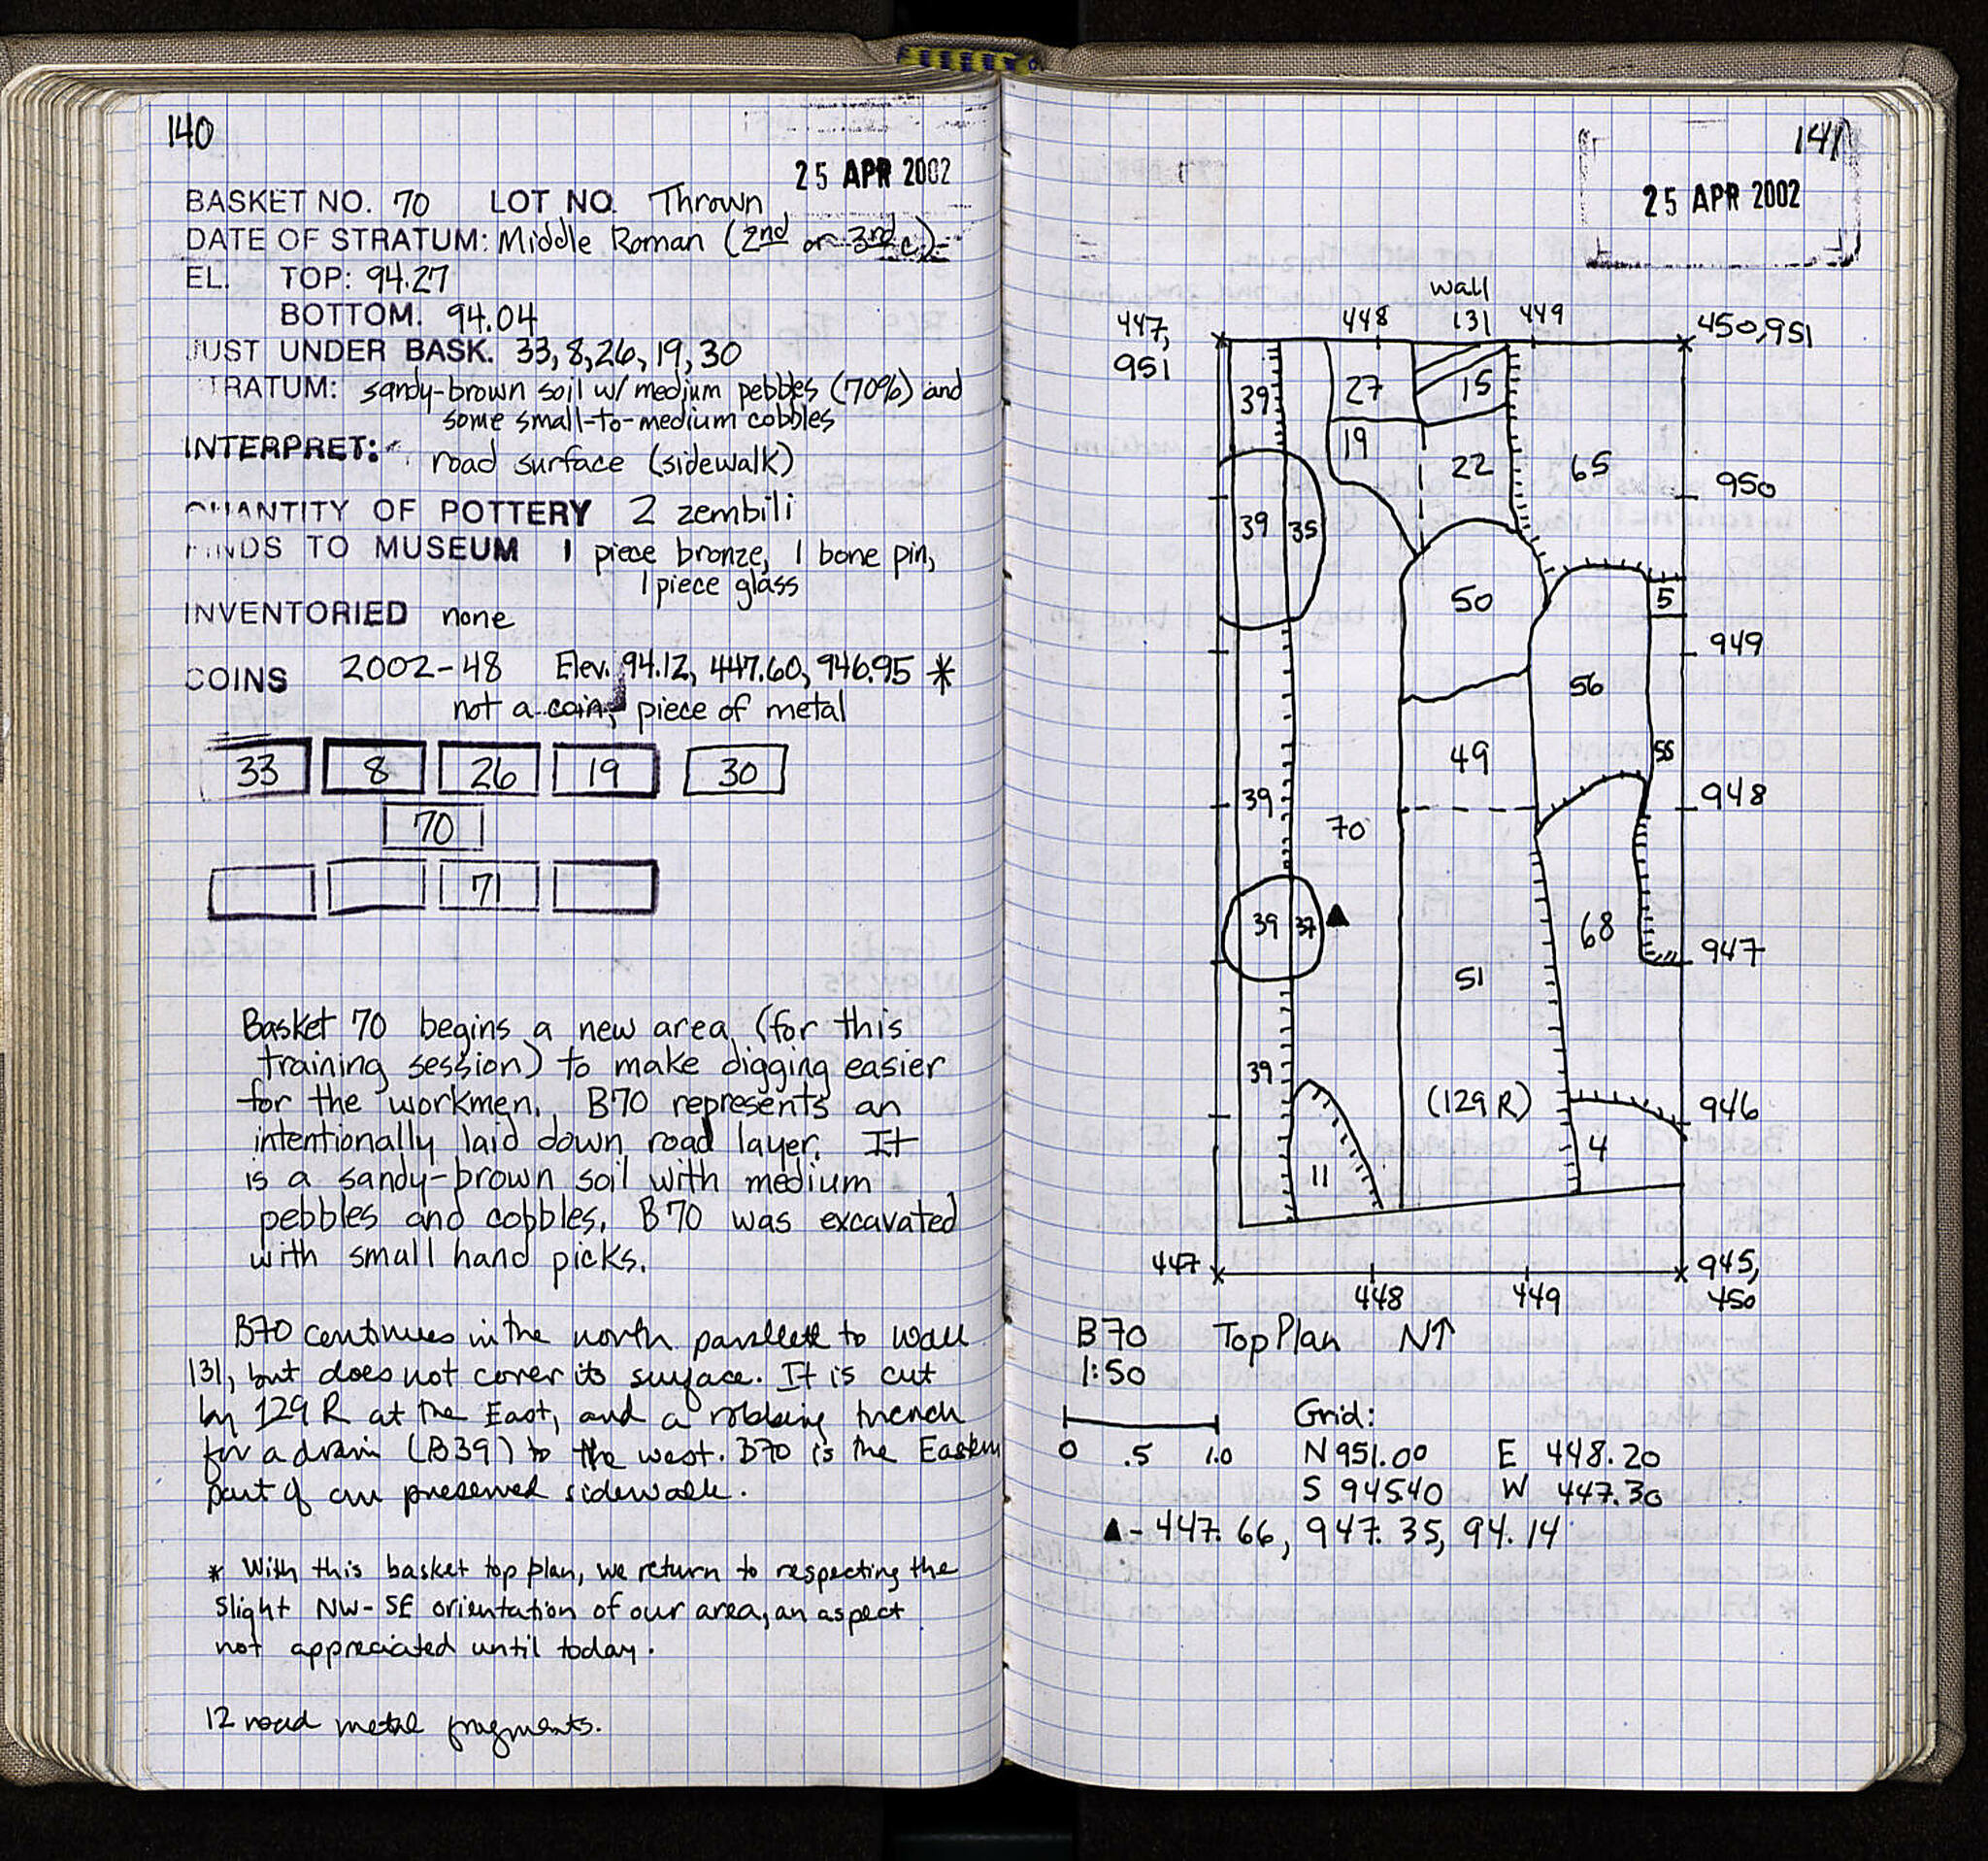 140
25 APR 2002
BASKET NO. 70 LOT NO. Thrown
DATE OF STRATUM: Middle Roman (2nd or 3rd c.)
EL. TOP: 94.27
BOTTOM: 94.04
JUST UNDER BASK. 33, 8, 26, 19, 30
STRATUM: sandy-brown soil w/ medium pebbles (70%) and
some small-to-medium cobbles
INTERPRET: road surface (sidewalk)
QUANTITY OF POTTERY 2 zembili
FINDS TO MUSEUM 1 piece bronze, 1 bone pin,
1 piece glass
INVENTORIED none
COINS 2002-48 Elev. 94.12, 447.60, 946.95 *
not a coin, piece of metal
33 8 26 19 30
70
71
Basket 70 begins a new area (for this
training session) to make digging easier
for the workmen. B70 represents an
intentionally laid down road layer. It
is a sandy-brown soil with medium
pebbles and cobbles. B70 was excavated
with small hand picks.
B70 continues in the north parallel to wall
131, but does not cover its surface. It is cut
by 129 R at the East, and a robbing trench
for a drain (B39) to the west. B70 is the Eastern
part of our preserved sidewalk.
* With this basket top plan, we return to respecting the
slight NW-SE orientation of our area, an aspect
not appreciated until today.
12 road metal fragments.
141
25 APR 2002
wall
447, 448 131 449 450, 951
951
39 27 15
19 22 65
950
39 35
50 5
949
56
49 55
39 948
70
39 37 ▲ 68 947
51
39 (129 R) 946
11 4
447 945,
448 449 450
B70 Top Plan N↑
1:50
0 .5 1.0
Grid:
N 951.00 E 448.20
S 945.40 W 447.30
▲ - 447.66, 947.35, 94.14